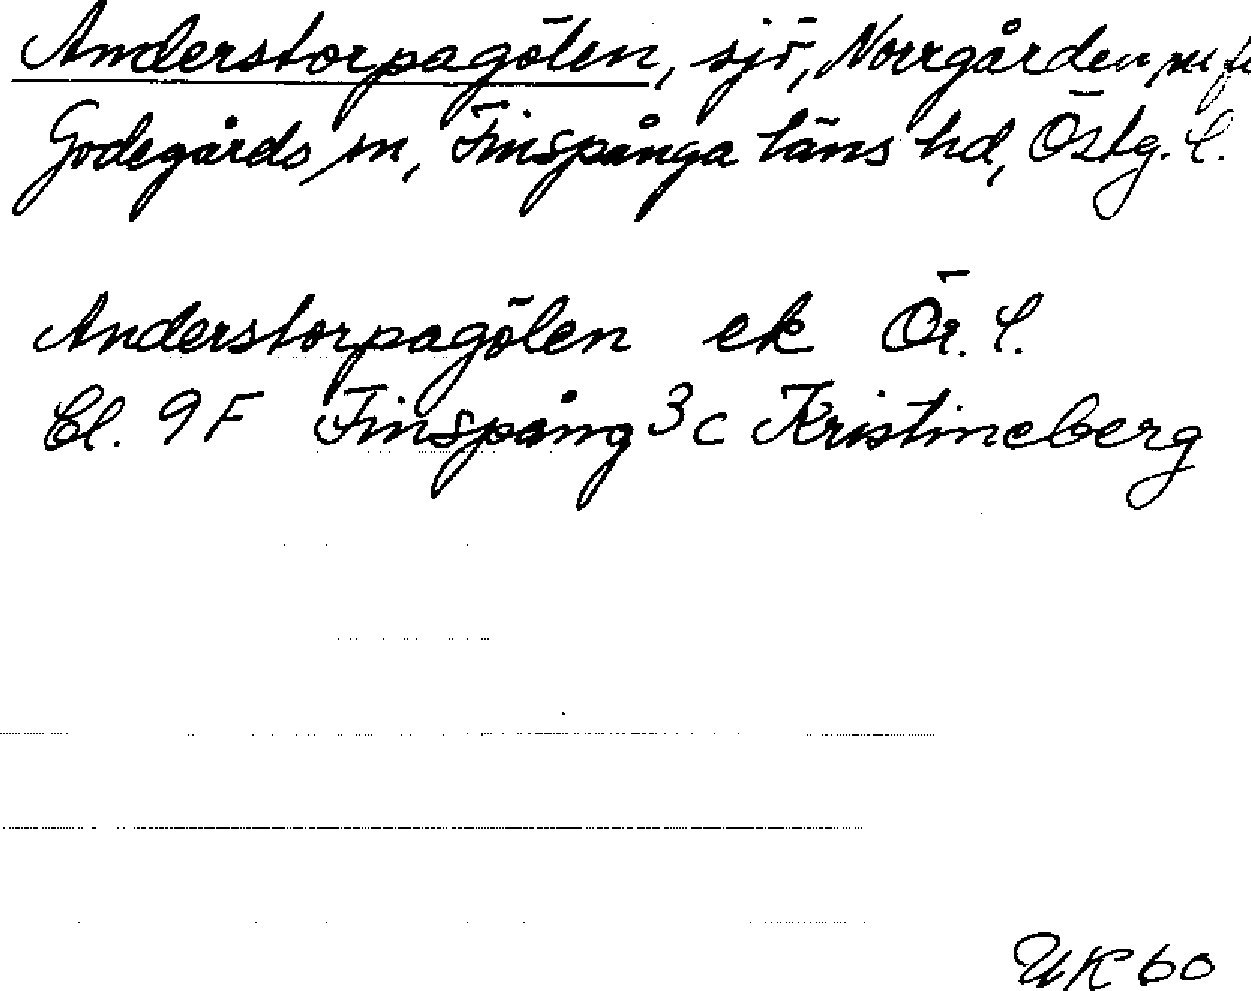 Anderstorpagölen, sjö, Norrgården,
Godegårds sn, Finspånga läns hd, Östg. l.
Anderstorpagölen ek Ör. l.
Bl. 9 F Finspång 3 c Kristineberg
UK 60